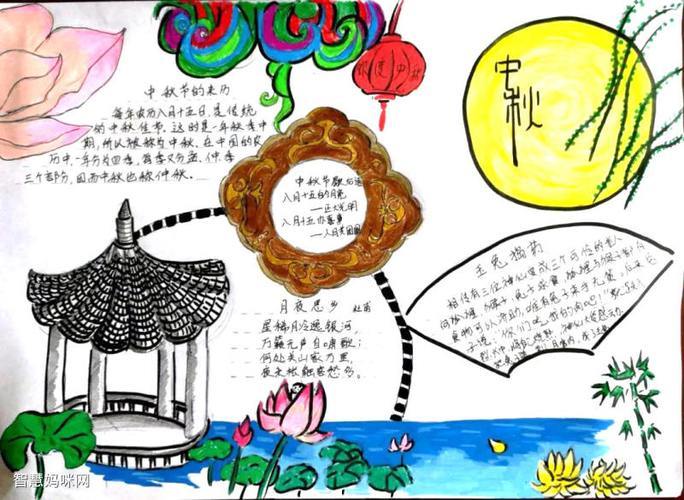 中秋节的来历
每年农历八月十五日,是传统
的中秋佳节。这时是一年秋季中
期,所以被称为中秋。在中国的农
历中,一年分为四季,每季又分孟、仲、季
三个部分,因而中秋也称仲秋。
欢度中秋
中秋
中秋节歇后语
八月十五的月亮
——正大光明
八月十五办喜事
——人月共团圆
玉兔捣药
相传有三位神仙变成三个可怜的老人
向狐狸、猴子、兔子求食,狐狸与猴子都有
食物可以济助,唯有兔子束手无策。后来兔
子说:"你们吃我的肉吧!"就跃入
烈火中,将自己烧熟,神仙大受感动,
把兔子送到月宫内,
月夜思乡 杜甫
星稀月冷逸银河,
万籁无声自啸歌;
何处关山家万里,
夜来枨触客愁多。
智慧妈咪网